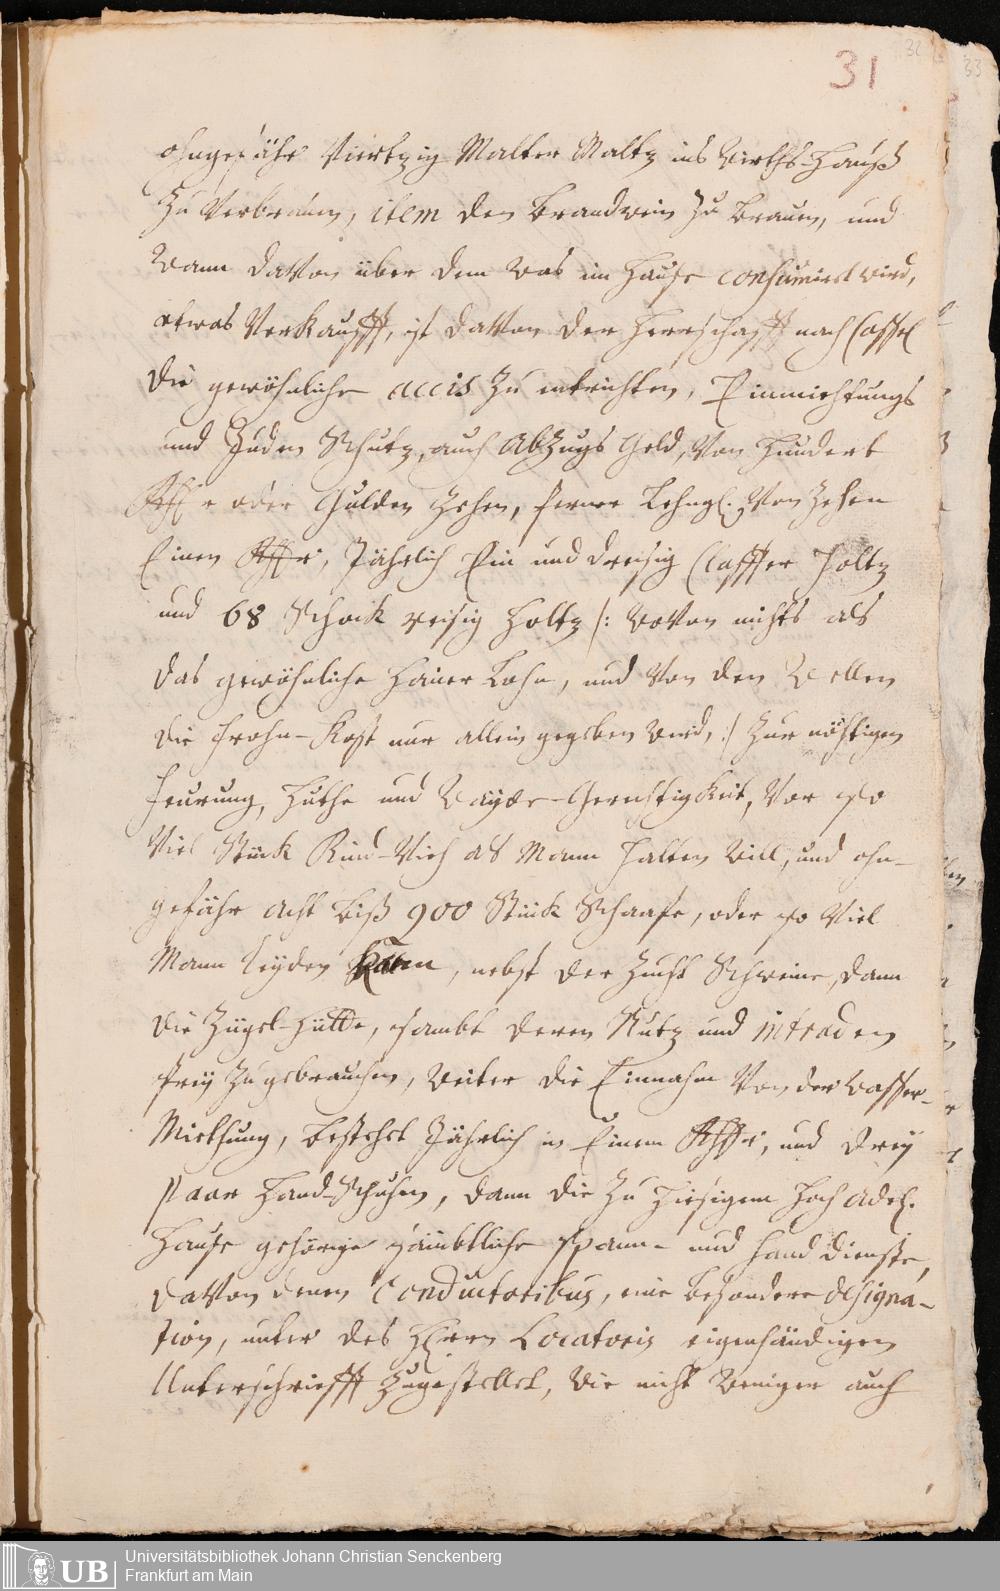 31
ohngefähr Viertzig Malter Maltz ins Wirths-Hauß
Zu Verbrauen, item den Brandwein Zu Brauen, und
Wann davon über dem was im Hause consumirt wird,
etwas Verkaufft, ist davon der Herrschafft nach Cassel
die gewöhnliche accis Zu entrichten,
und Juden Schutz, auch Abzugs Geld, Von Hundert
Rthlr oder Gulden Zehen, ferner Lehngl. Von Zehen
Einen Rthlr, Jährlich Ein und dreisig Claffter Holtz
und 68 Schock reisig Holtz /: wovon nichts als
das gewöhnliche Hauer Lohn, und Von den Wellen
die Frohn-Kost nur allein gegeben wird, :/ Zur nöthigen
Feurung, Huthe und Wayde-Gerechtigkeit, Vor so
Viel Stück Rind-Vieh als Mann halten will, und ohn-
gefähr acht biß 900 Stück Schaafe, oder so Viel
Mann leyden kann, nebst der Zucht Schweine, dann
die Zügel-Hütte, sambt deren Nutz und intraden
frey Zugebrauchen, weiter die Einnahm Von der Wasser-
Miethung, bestehet Jährlich in Einem Rthlr, und drey
paar Hand-Schuhen, dann die Zu hiesigem Hoch adel.
Hause gehörige sämbtliche spann- und Hand dienste,
davon denen Conductoribus, eine besondere designa-
tion, unter des Herrn Locatoris eigenhändigen
Unterschrifft Zugestellet, wie nicht weniger auch
UB
Universitätsbibliothek Johann Christian Senckenberg
Frankfurt am Main